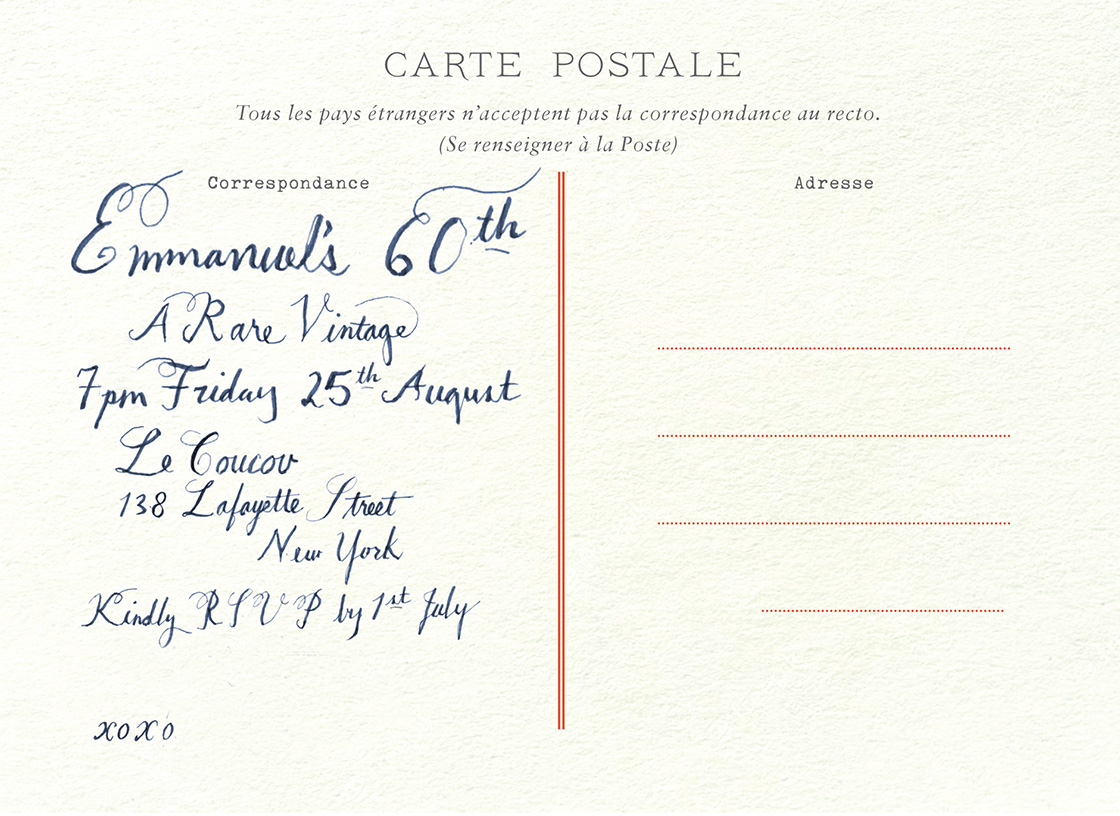 CARTE POSTALE
Tous les pays étrangers n'acceptent pas la correspondance au recto.
(Se renseigner à la Poste)
Correspondance
Adresse
Emmanuel's 60th
A Rare Vintage
7pm Friday 25th August
Le Coucou
138 Lafayette Street
New York
Kindly RSVP by 1st July
xoxo